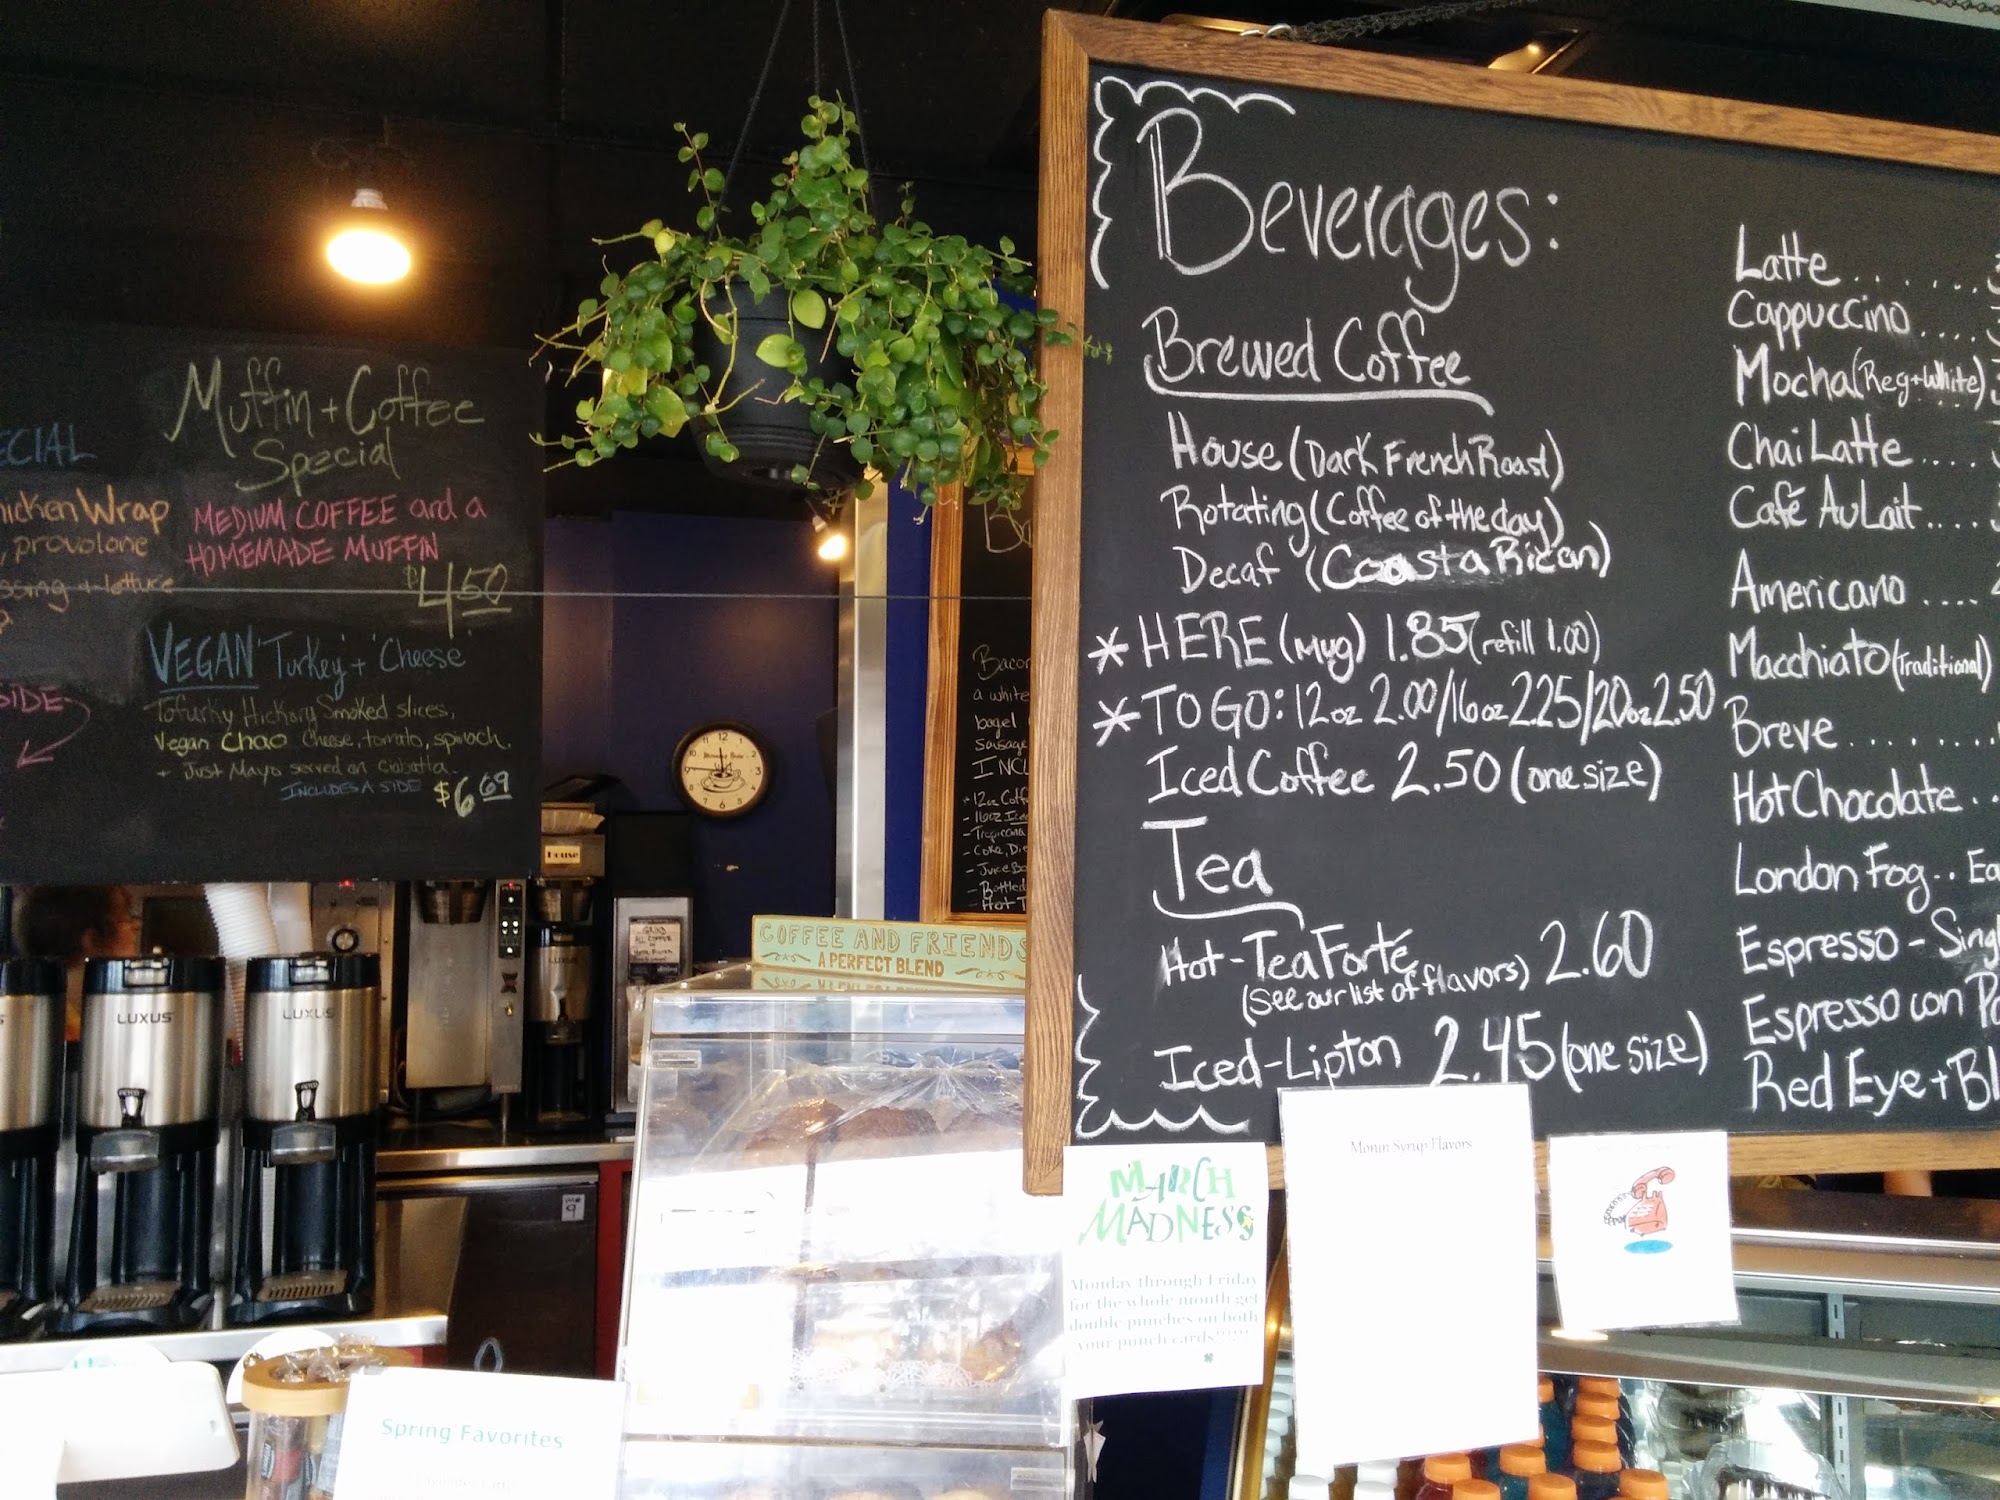 Muffin + Coffee
Special
MEDIUM COFFEE and a
HOMEMADE MUFFIN
$4.50
ECIAL
hicken Wrap
, provolone
ssing + lettuce
SIDE
VEGAN 'Turkey' + 'Cheese'
Tofurky Hickory Smoked slices,
Vegan Chao Cheese, tomato, spinach.
+ Just Mayo served on Ciabatta.
INCLUDES A SIDE $6.69
Bacon
a white
bagel
Sausage
INCL
12oz Coff
- 16oz Iced
- Tropicana
- Coke, Die
- Juice Bo
- Bottled
- Hot T
House
LUXUS
LUXUS
LUXUS
COFFEE AND FRIENDS
A PERFECT BLEND
9
Beverages:
Brewed Coffee
House (Dark French Roast)
Rotating (Coffee of the day)
Decaf (Coasta Rican)
* HERE (Mug) 1.85 (refill 1.00)
* TO GO: 12oz 2.00/16oz 2.25/20oz 2.50
Iced Coffee 2.50 (one size)
Tea
Hot - Tea Forté 2.60
(See our list of flavors)
Iced - Lipton 2.45 (one size)
Latte . . . . . . .
Cappuccino . . . .
Mocha (Reg + White)
Chai Latte . . . .
Café Au Lait . . . .
Americano . . . .
Macchiato (Traditional)
Breve . . . . . . . .
Hot Chocolate . .
London Fog . . Ea
Espresso - Singl
Espresso con Pa
Red Eye + Bl
MARCH
MADNESS
Monday through Friday
for the whole month get
double punches on both
your punch cards!!!!!
Monin Syrup Flavors
Spring Favorites